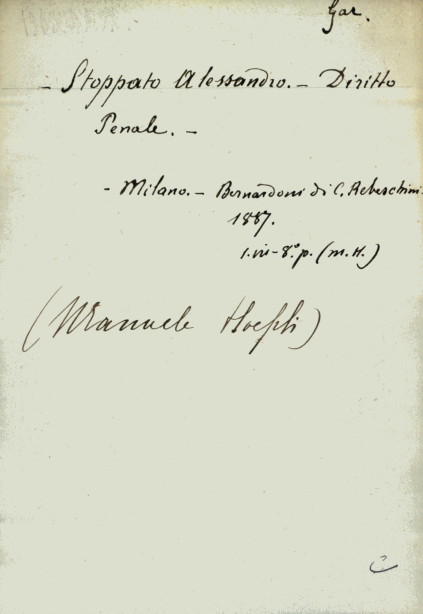 Gar.
- Stoppato Alessandro. - Diritto
Penale. -
- Milano. - Bernardoni di C. Rebeschini.
1887.
1. vii - 8.° p. (m. H.)
(Manuele Hoepli)
C